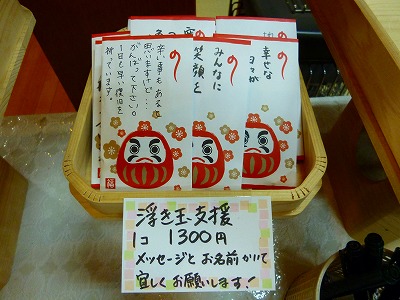 幸せな
みんなに
笑顔を
辛い事も ある
思いますけど…
がんばって下さい。
1日も早い復旧を
祈っています。
福
浮き玉支援
1コ 1300円
メッセージと お名前かいて
宜しくお願いします!